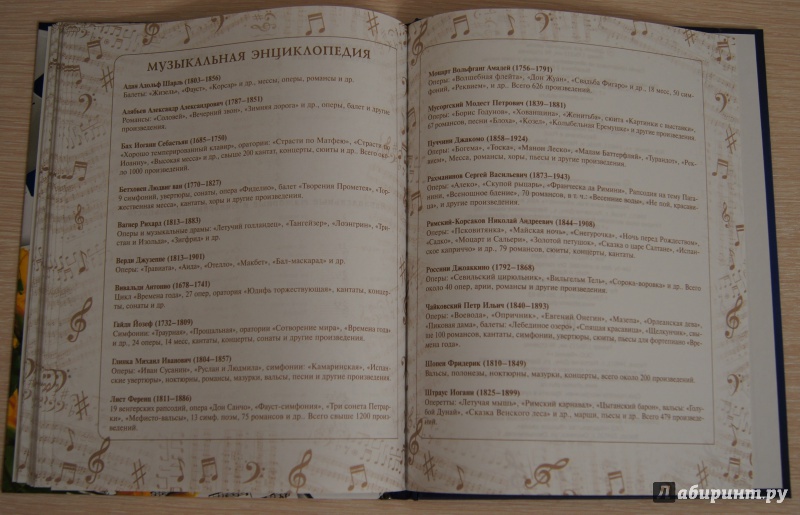 МУЗЫКАЛЬНАЯ ЭНЦИКЛОПЕДИЯ
Адан Адольф Шарль (1803–1856)
Балеты: «Жизель», «Фауст», «Корсар» и др., мессы, оперы, романсы и др.
Алябьев Александр Александрович (1787–1851)
Романсы: «Соловей», «Вечерний звон», «Зимняя дорога» и др., оперы, балет и другие
произведения.
Бах Иоганн Себастьян (1685–1750)
«Хорошо темперированный клавир», оратории: «Страсти по Матфею», «Страсти по
Иоанну», «Высокая месса» и др., свыше 200 кантат, концерты, сюиты и др. Всего около
1000 произведений.
Бетховен Людвиг ван (1770–1827)
9 симфоний, увертюры, сонаты, опера «Фиделио», балет «Творения Прометея», «Тор-
жественная месса», кантаты, хоры и другие произведения.
Вагнер Рихард (1813–1883)
Оперы и музыкальные драмы: «Летучий голландец», «Тангейзер», «Лоэнгрин», «Три-
стан и Изольда», «Зигфрид» и др.
Верди Джузеппе (1813–1901)
Оперы: «Травиата», «Аида», «Отелло», «Макбет», «Бал-маскарад» и др.
Вивальди Антонио (1678–1741)
Цикл «Времена года», 27 опер, оратория «Юдифь торжествующая», кантаты, концер-
ты, сонаты и др.
Гайдн Йозеф (1732–1809)
Симфонии: «Траурная», «Прощальная», оратории «Сотворение мира», «Времена года»
и др., 24 оперы, 14 месс, кантаты, концерты, сонаты и др.
Глинка Михаил Иванович (1804–1857)
Оперы: «Иван Сусанин», «Руслан и Людмила», симфонии: «Камаринская», «Испан-
ские увертюры», ноктюрны, романсы, мазурки, вальсы, песни и другие произведения.
Лист Ференц (1811–1886)
19 венгерских рапсодий, опера «Дон Санчо», «Фауст-симфония», «Три сонета Петрар-
ки», «Мефисто-вальсы», 13 симф. поэм, 75 романсов и др. Всего свыше 1200 произ-
ведений.
Моцарт Вольфганг Амадей (1756–1791)
Оперы: «Волшебная флейта», «Дон Жуан», «Свадьба Фигаро» и др., 18 месс, 50 сим-
фоний, «Реквием» и др. Всего 626 произведений.
Мусоргский Модест Петрович (1839–1881)
Оперы: «Борис Годунов», «Хованщина», «Женитьба», сюита «Картинки с выставки»,
67 романсов, песни «Блоха», «Козел», «Колыбельная Еремушке» и другие произведения.
Пуччини Джакомо (1858–1924)
Оперы: «Богема», «Тоска», «Манон Леско», «Мадам Баттерфляй», «Турандот», «Рек-
вием», Месса, романсы, хоры, пьесы и другие произведения.
Рахманинов Сергей Васильевич (1873–1943)
Оперы: «Алеко», «Скупой рыцарь», «Франческа да Римини», Рапсодия на тему Пага-
нини, «Всенощное бдение», 70 романсов, в т. ч.: «Весенние воды», «Не пой, красави-
ца», и другие произведения.
Римский-Корсаков Николай Андреевич (1844–1908)
Оперы: «Псковитянка», «Майская ночь», «Снегурочка», «Ночь перед Рождеством»,
«Садко», «Моцарт и Сальери», «Золотой петушок», «Сказка о царе Салтане», «Испан-
ское каприччо» и др., 79 романсов, сюиты, концерты, кантаты.
Россини Джоаккино (1792–1868)
Оперы: «Севильский цирюльник», «Вильгельм Телль», «Сорока-воровка» и др. Всего
около 40 опер, арии, романсы и другие произведения.
Чайковский Петр Ильич (1840–1893)
Оперы: «Воевода», «Опричник», «Евгений Онегин», «Мазепа», «Орлеанская дева»,
«Пиковая дама», балеты: «Лебединое озеро», «Спящая красавица», «Щелкунчик», свы-
ше 100 романсов, кантаты, симфонии, увертюры, сюиты, пьесы для фортепиано «Вре-
мена года».
Шопен Фридерик (1810–1849)
Вальсы, полонезы, ноктюрны, мазурки, концерты, всего около 200 произведений.
Штраус Иоганн (1825–1899)
Оперетты: «Летучая мышь», «Римский карнавал», «Цыганский барон», вальсы: «Голу-
бой Дунай», «Сказка Венского леса» и др., марши, пьесы и др. Всего 479 произведений.
Лабиринт.ру